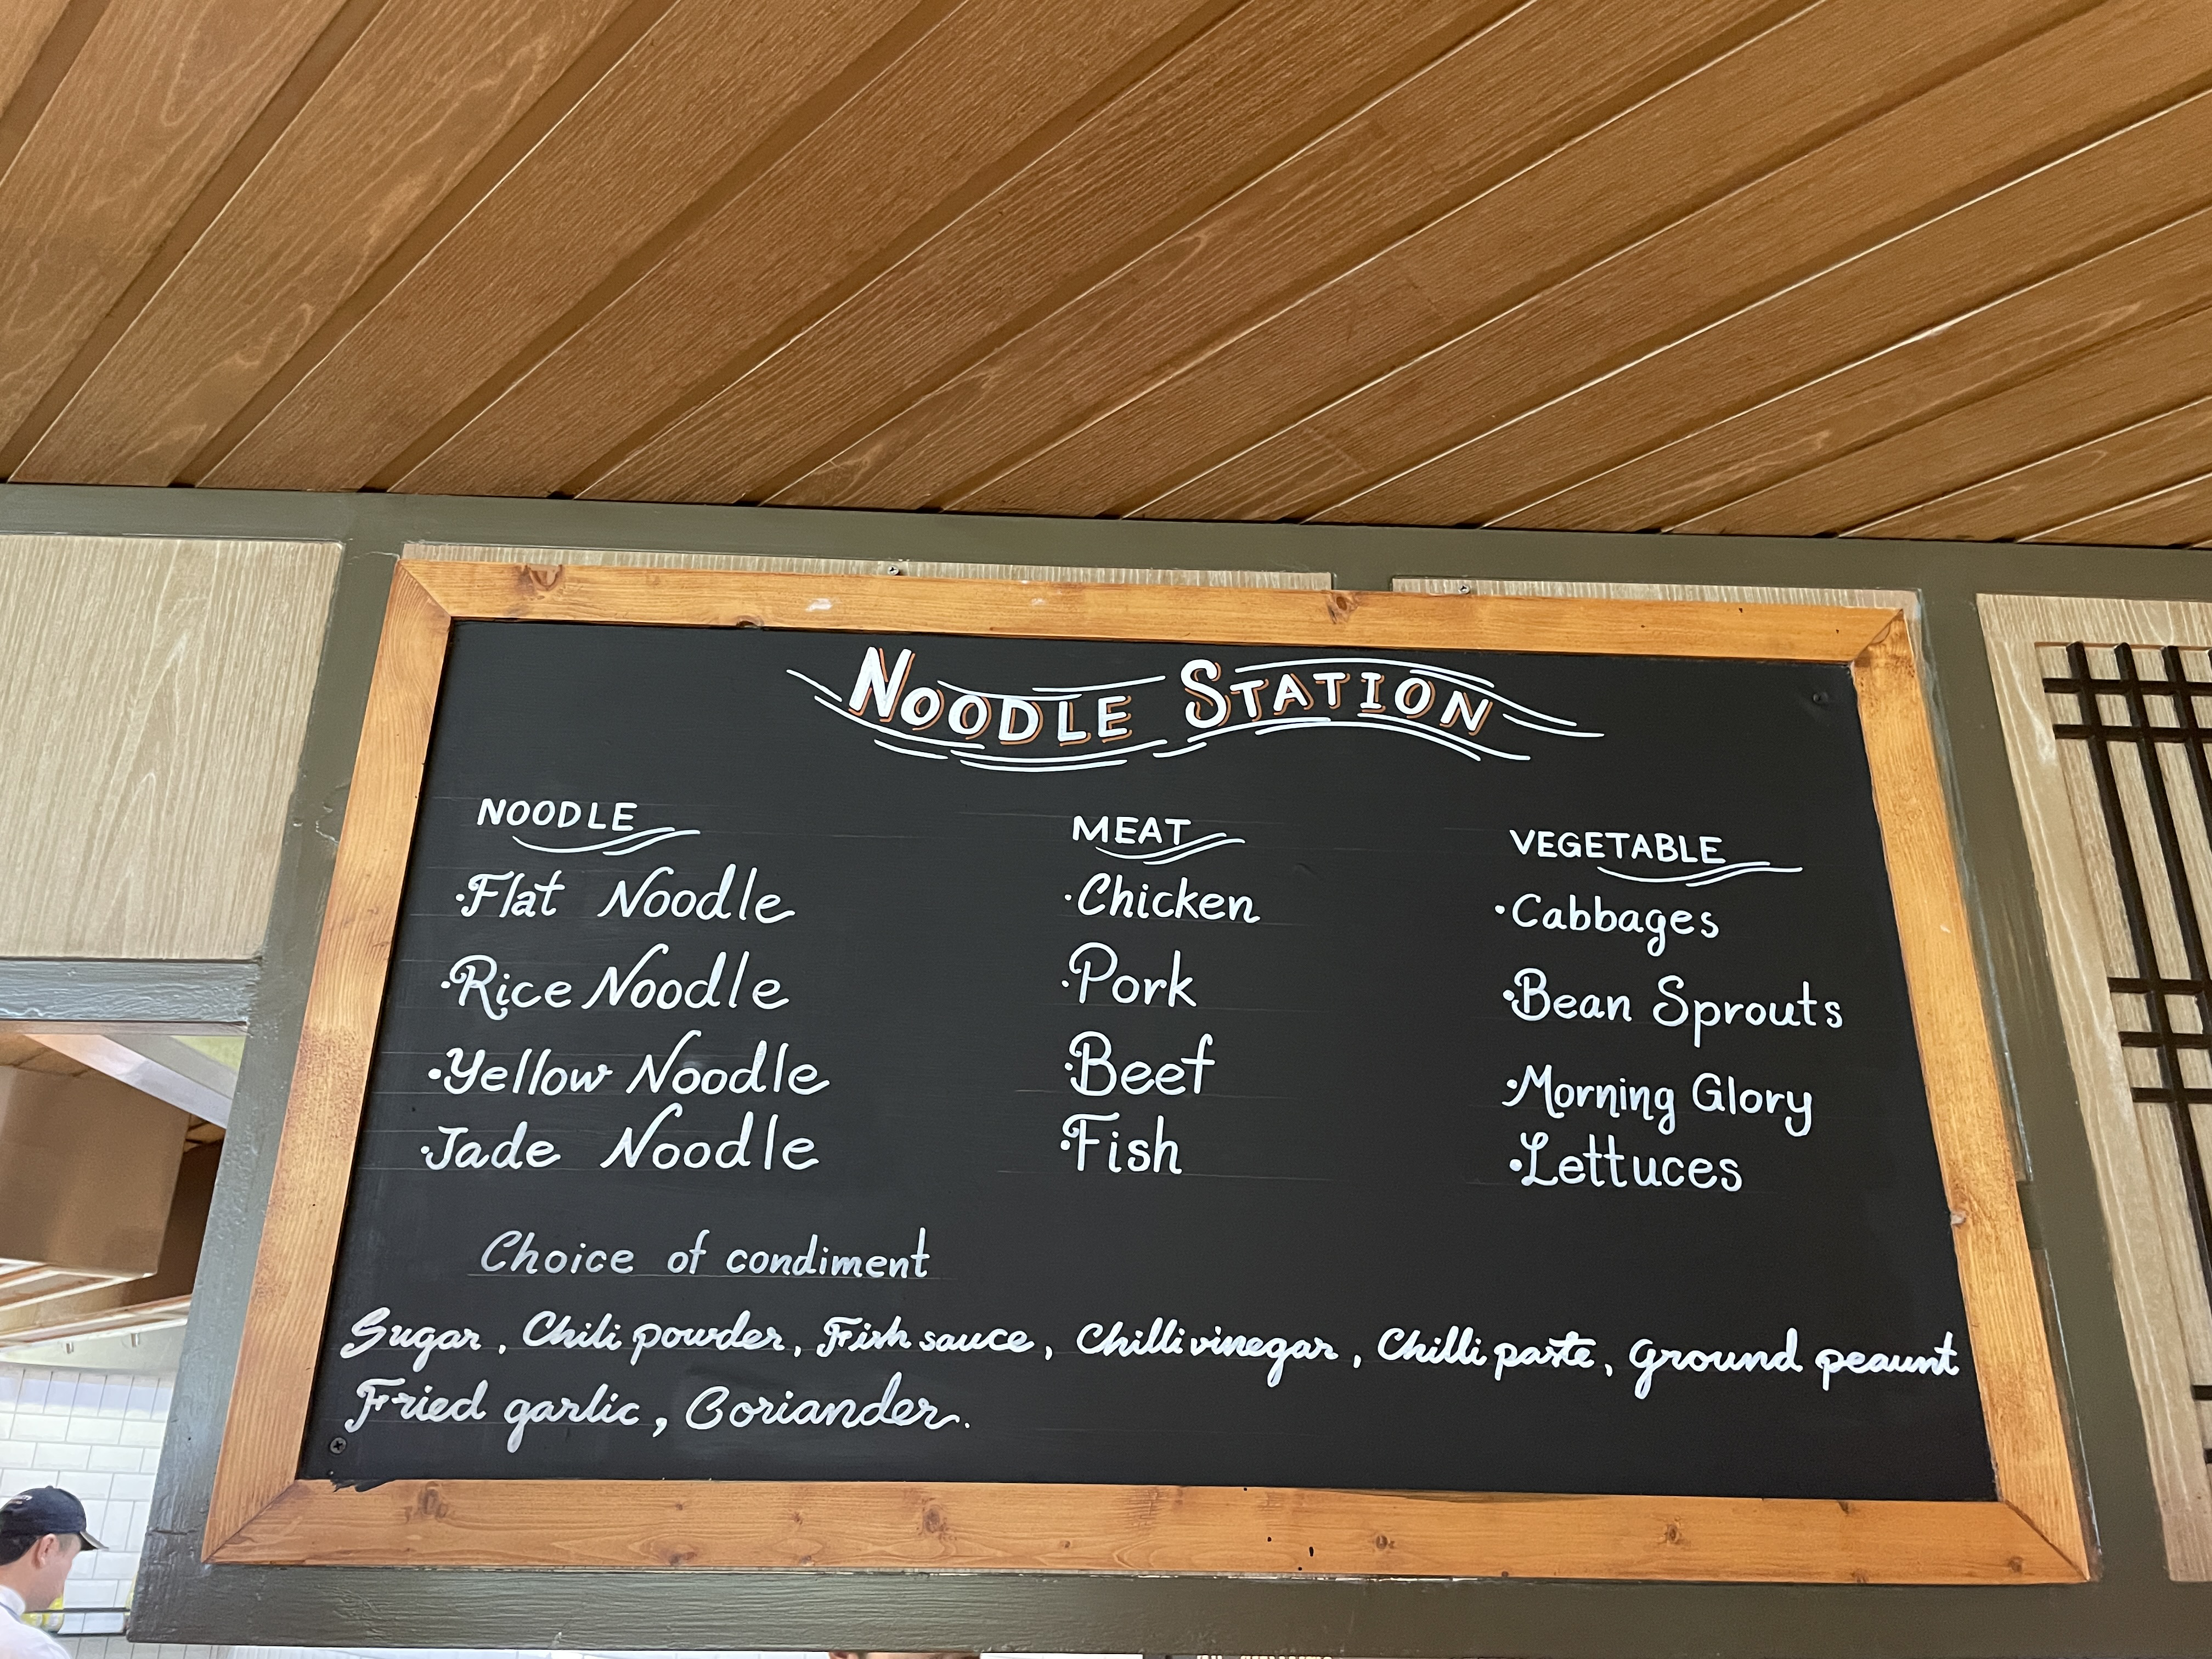 NOODLE STATION
NOODLE
·Flat Noodle
·Rice Noodle
·Yellow Noodle
·Jade Noodle
MEAT
·Chicken
·Pork
·Beef
·Fish
VEGETABLE
·Cabbages
·Bean Sprouts
·Morning Glory
·Lettuces
Choice of condiment
Sugar, Chili powder, Fish sauce, Chilli vinegar, Chilli paste, Ground peaunt
Fried garlic, Coriander.